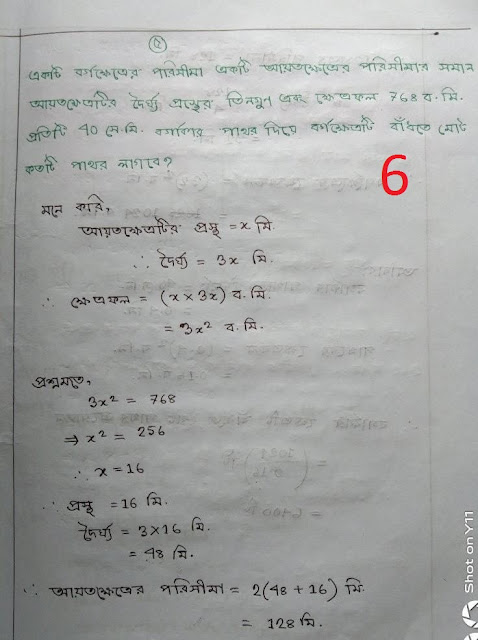 একটি বর্গক্ষেত্রের পরিসীমা একটি আয়তক্ষেত্রের পরিসীমার সমান
আয়তক্ষেত্রটির দৈর্ঘ্য প্রস্থের তিনগুন এবং ক্ষেত্রফল 768 ব. মি.
প্রতিটি 40 সে.মি. বর্গাকার পাথর দিয়ে বর্গক্ষেত্রটি বাঁধতে মোট
কতটি পাথর লাগবে?
6
মনে করি,
আয়তক্ষেত্রটির প্রস্থ = x মি.
∴ দৈর্ঘ্য = 3x মি.
∴ ক্ষেত্রফল = (x × 3x) ব. মি.
= 3x² ব. মি.
প্রশ্নমতে,
3x² = 768
⇒ x² = 256
∴ x = 16
∴ প্রস্থ = 16 মি.
দৈর্ঘ্য = 3×16 মি.
= 48 মি.
∴ আয়তক্ষেত্রের পরিসীমা = 2(48 + 16) মি.
= 128 মি.
Shot on Y11